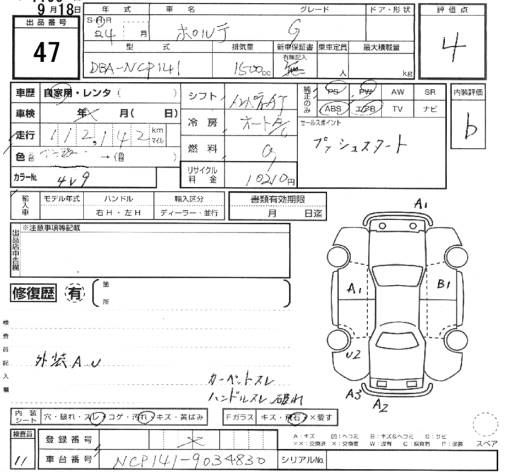 9月18日
出品番号
47
年式 車名 グレード ドア・形状
S・H・R 24 月 ポルテ G
型式 排気量 新車保証書 乗車定員 最大積載量
有無記入
DBA-NCP141 1500cc 人 kg
評価点
4
車歴 自家用・レンタ( )
車検 年 月( 日)
走行 112,142 km マイル
色
カラーNo. 4V9
シフト インパネAT
冷房 オートA/C
燃料 G
リサイクル料金 10210円
純正のみ
PS PW AW SR
ABS エアB TV ナビ
セールスポイント
プッシュスタート
内装評価
b
輸入車
モデル年式 ハンドル 輸入区分
右H・左H ディーラー・並行
書類有効期限
月 日迄
※注意事項等記載
出品店申告欄
修復歴 有
箇所
検査員記入欄
外装AU
カーペットスレ
ハンドルスレ 破れ
A1
A1
B1
U2
A3
A2
内装シート 穴・破れ・スレ・コゲ・汚れ・キズ・黄ばみ
Fガラス キズ・飛石・×要す
スペア
検査員
11
登録番号 ×
車台番号 NCP141-9034830
シリアルNo.